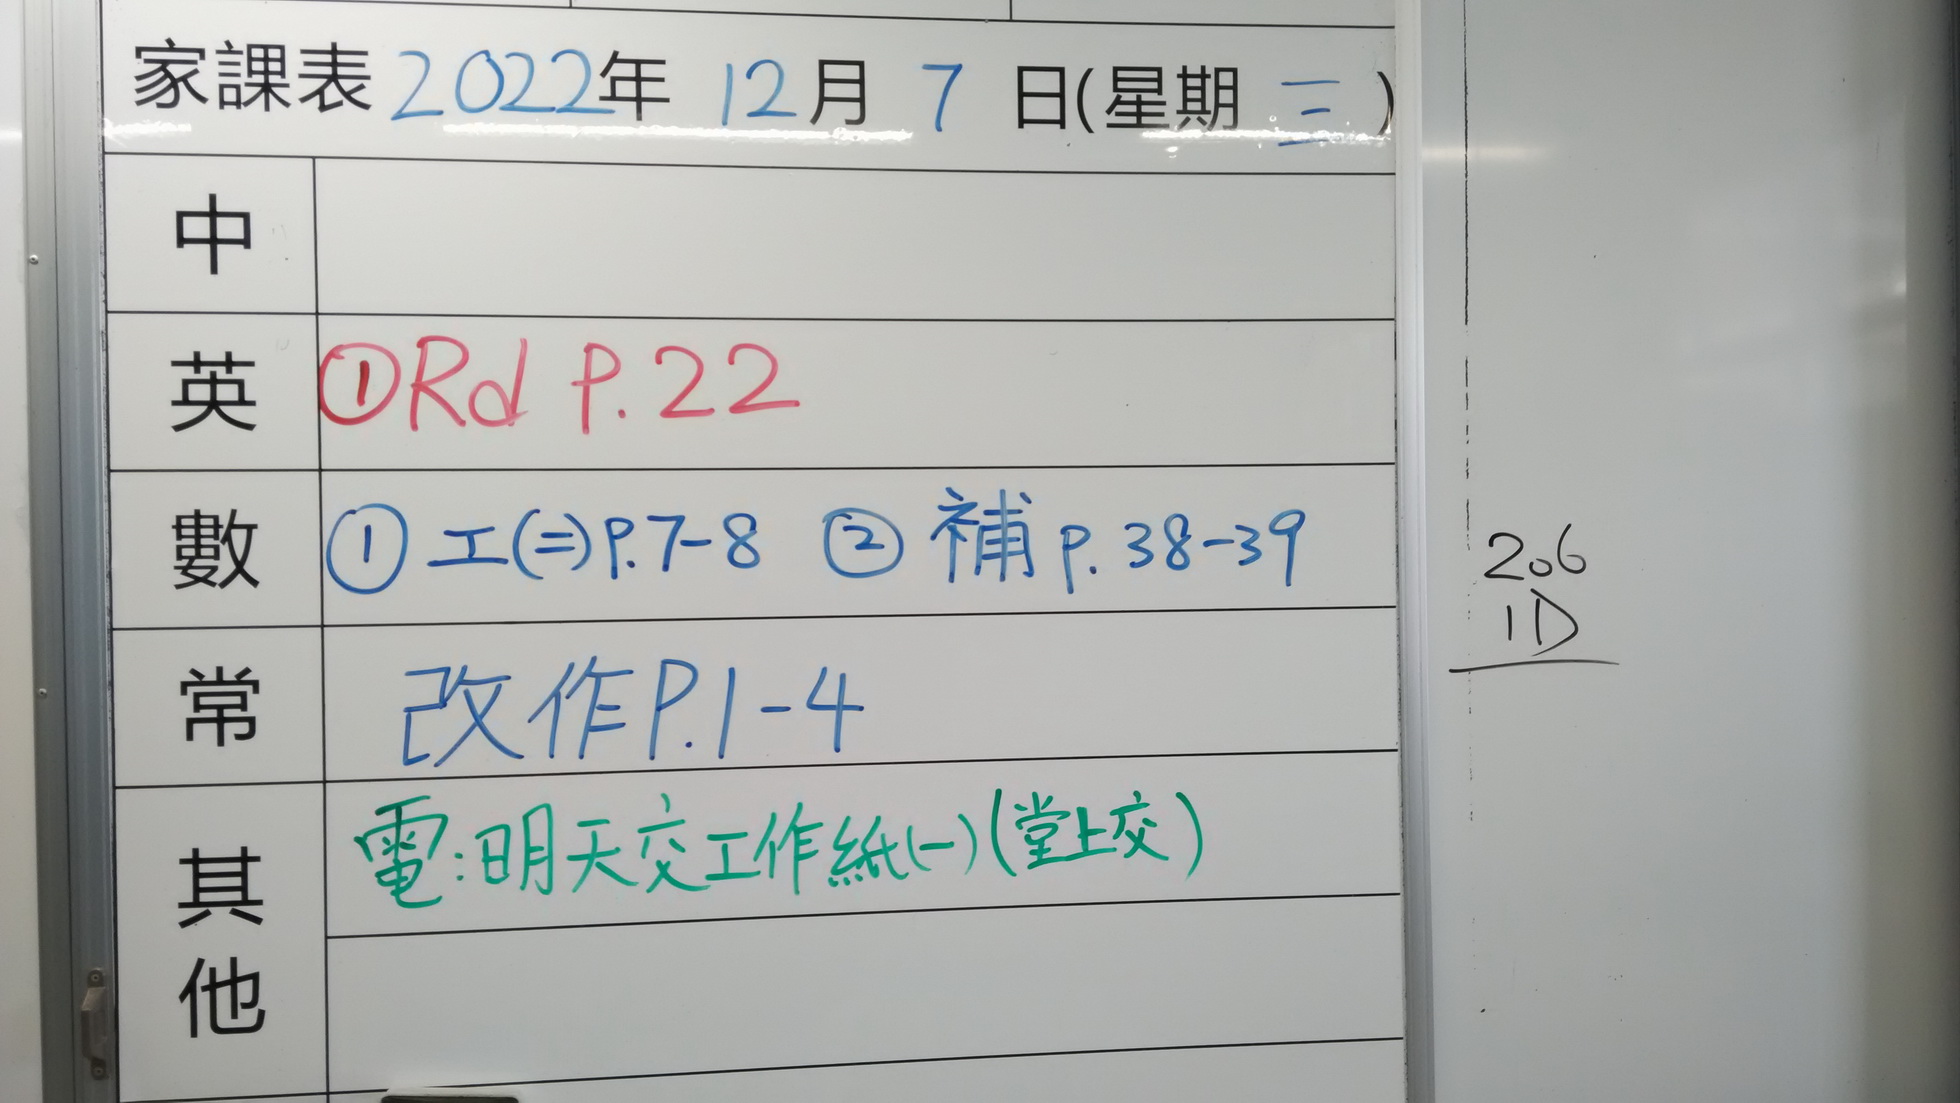 家課表 2022年 12月 7 日(星期 三)
中
英 ①Rd P.22
數 ① 工(二)P.7-8 ② 補 p. 38-39
常 改作P.1-4
其他 電:明天交工作紙(一)(堂上交)
206
1D